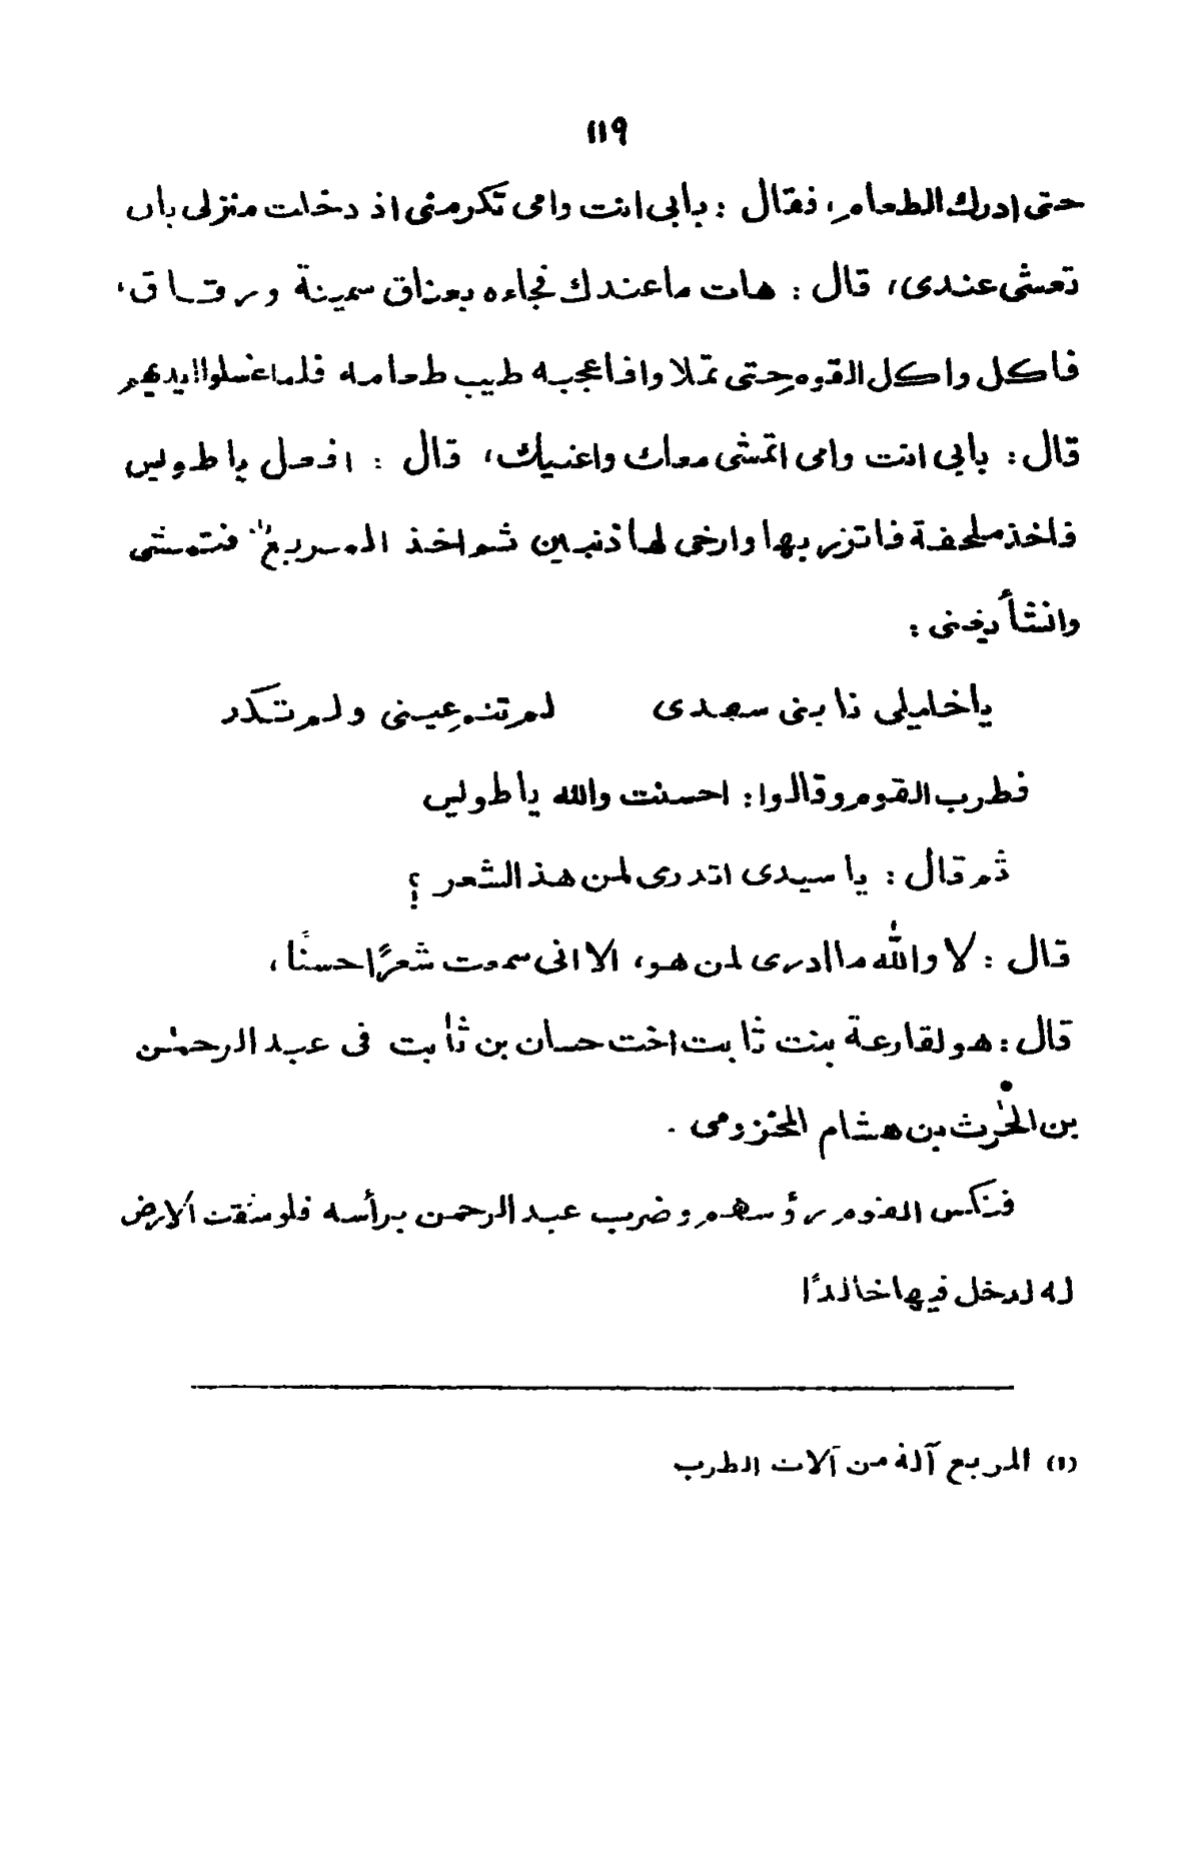 ١١٩
حتى ادرك الطعام، فقال : بابى انت وامى تكرمنى اذ دخلت منزلى بان
تعشى عندى، قال : هات ماعندك فجاءه بعناق سمينة ورقاق،
فاكل واكل القوم حتى تملاوا فاعجبه طيب طعامه فلما غسلوا ايديهم
قال : بابى انت وامى اتمشى معك واغنيك، قال : افعل ياطويس
فاخذ ملحفة فاتزر بها وارخى لها ذنبين ثم اخذ المربع(١) فتمشى
وانشأ يغنى :
ياخليلى نابنى سهدى لم تنم عينى ولم تكد
فطرب القوم وقالوا : احسنت والله ياطويس
ثم قال : يا سيدى اتدرى لمن هذ الشعر ؟
قال : لا والله ما ادرى لمن هو، الا انى سمعت شعرًا حسنًا،
قال : هو لقارعة بنت ثابت اخت حسان بن ثابت فى عبد الرحمٰن
بن الحٰرث بن هشام المخزومى .
فنكس القوم رؤسهم وضرب عبد الرحمن برأسه فلو شقت الارض
له لدخل فيها خالدًا
(١) المربع آلة من آلات الطرب